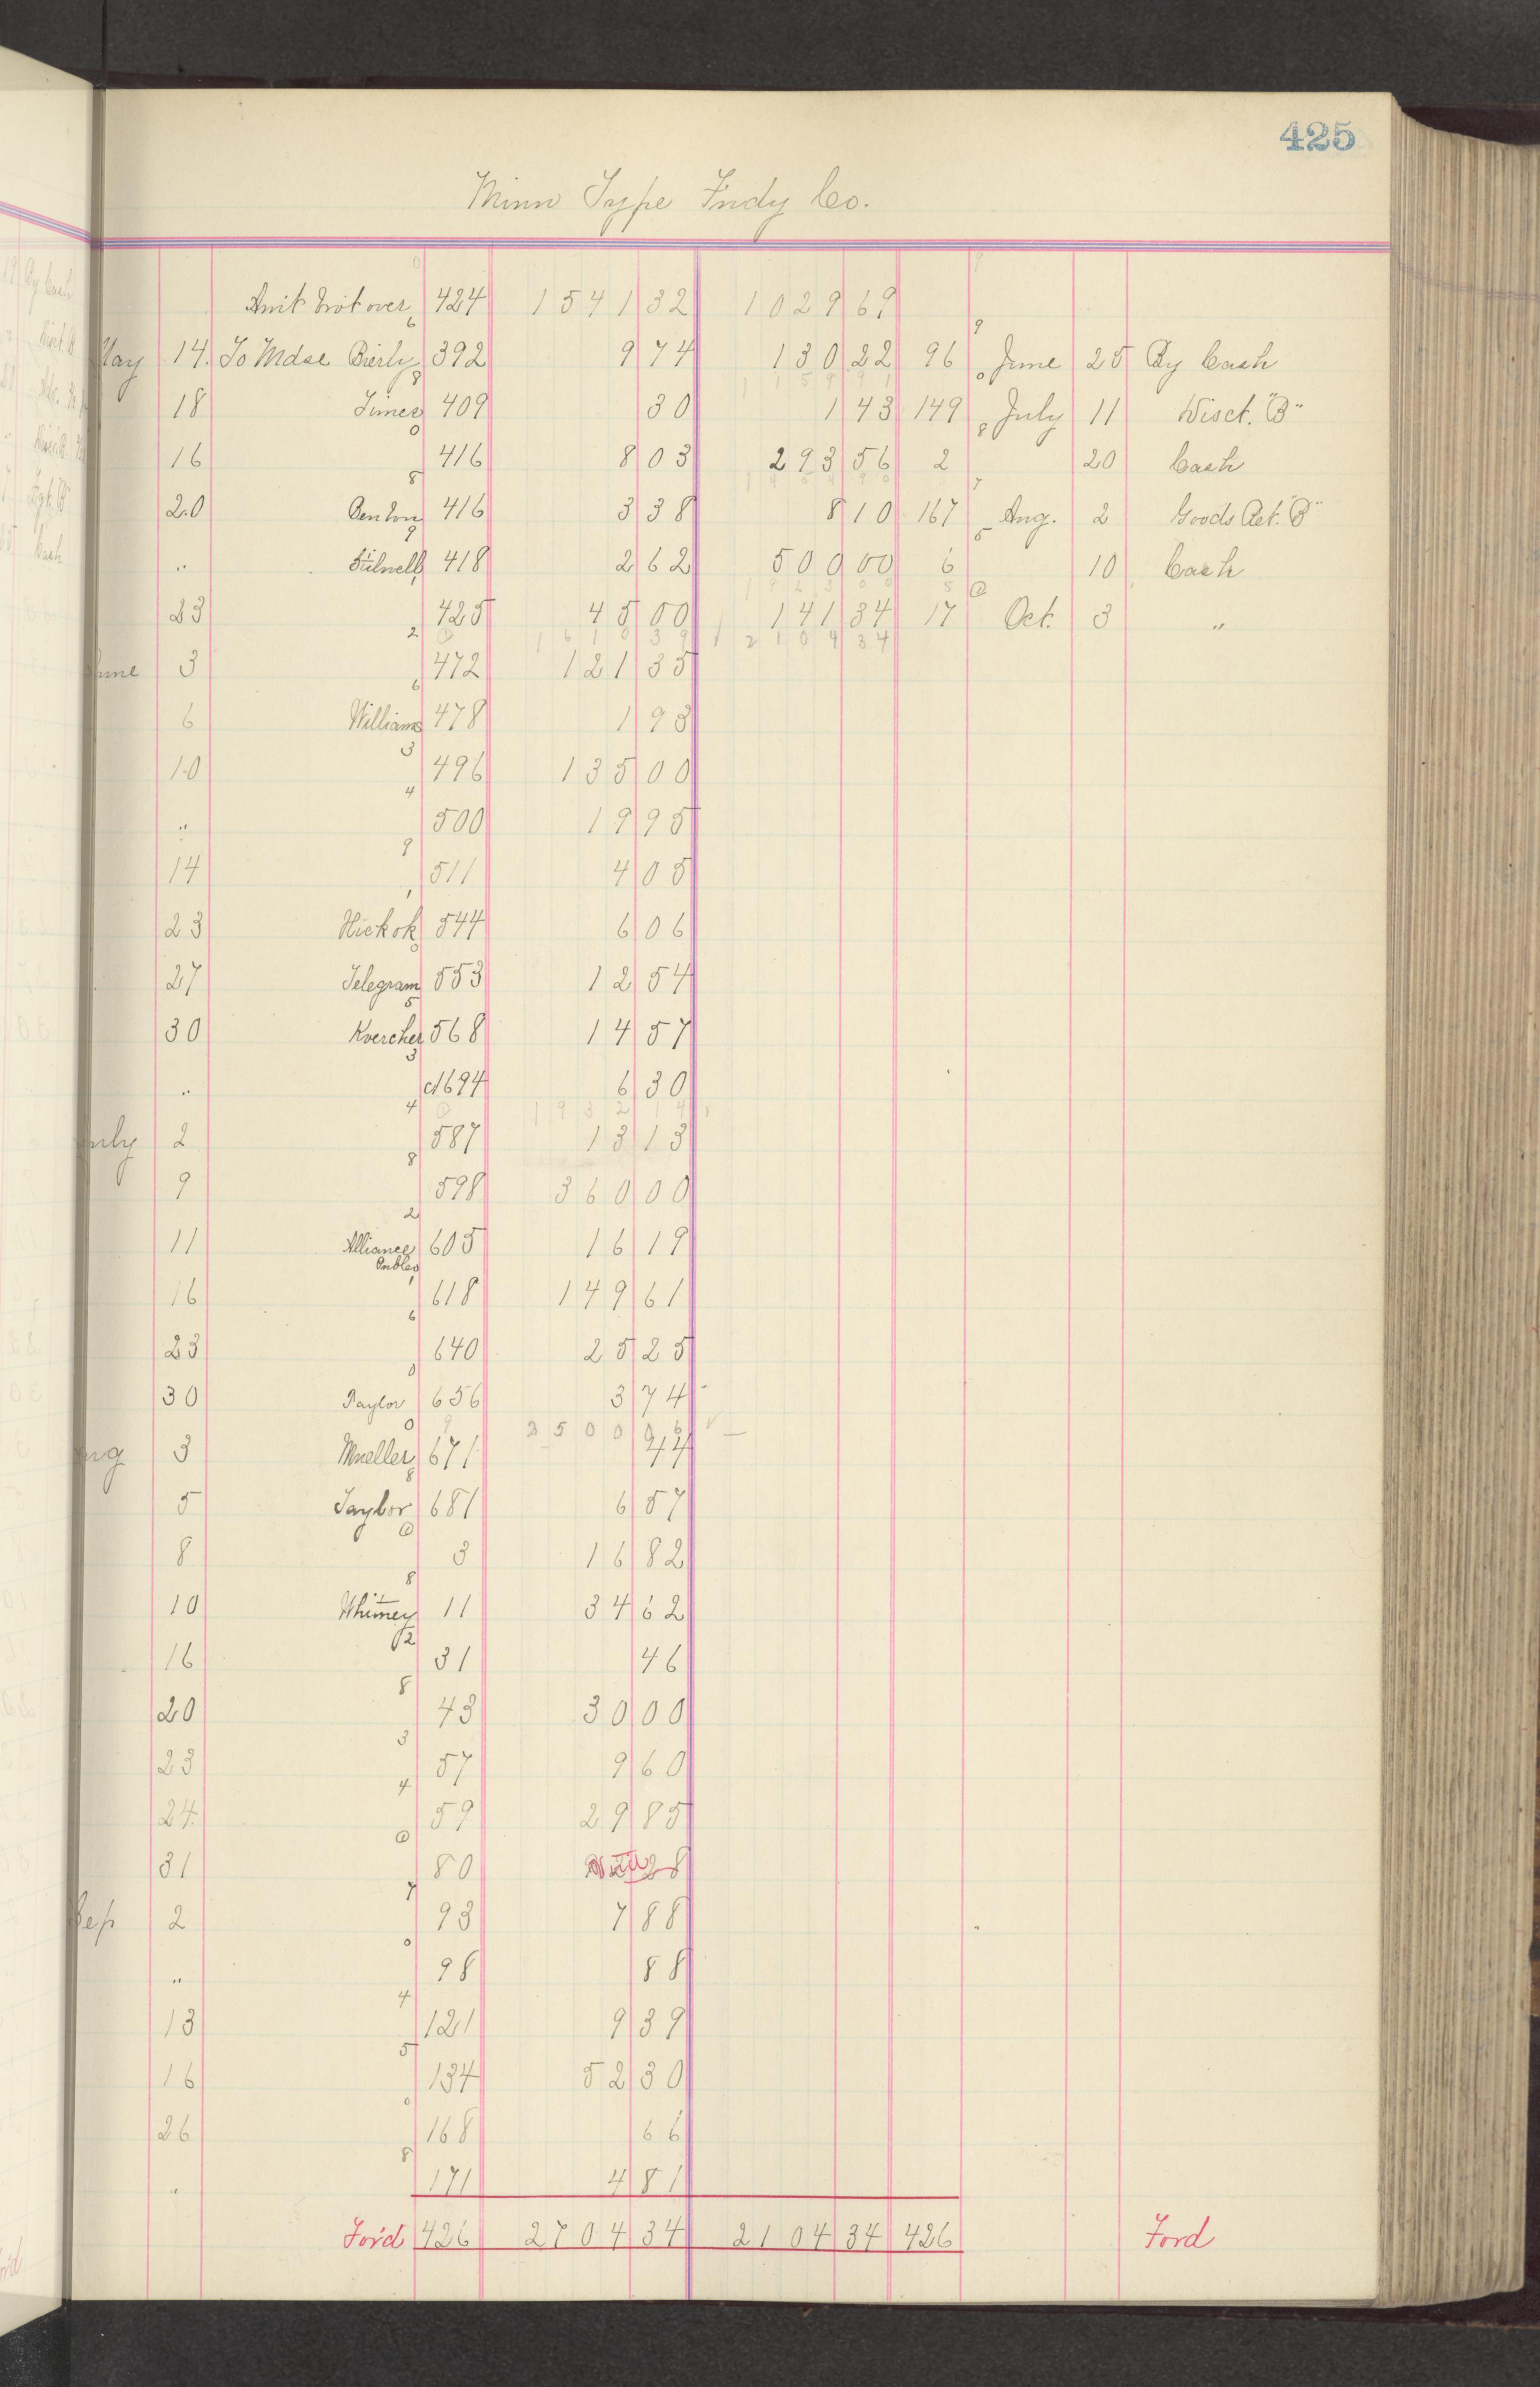 425
Minn Type Fndy Co.
Amt brot over 424 1541 32 1029 69
May 14 To Mdse Bierly 392 9 74 130 22 96 June 25 By Cash
18 Times 409 30 1 43 149 July 11 Disct. "B"
16 416 8 03 293 56 2 20 Cash
20 Benton 416 3 38 8 10 167 Aug. 2 Goods Ret. "B"
" Stilwell 418 2 62 500 00 6 10 Cash
23 425 45 00 141 34 17 Oct. 3 "
1610 39 2104 34
June 3 472 121 35
6 Williams 478 1 93
10 496 135 00
" 500 19 95
14 511 4 05
23 Hickok 544 6 06
27 Telegram 553 12 54
30 Kvercher 568 14 57
" 694 6 30
1932 14
July 2 587 13 13
9 598 360 00
11 Alliance 605 16 19
Pubs
16 618 149 61
23 640 25 25
30 Paylor 656 3 74
2500 06
Aug 3 Mueller 671 44
5 Taylor 681 6 57
8 3 16 82
10 Whitney 11 34 62
16 31 46
20 43 30 00
23 57 9 60
24 59 29 85
31 80 28
Sep 2 93 7 88
" 98 88
13 121 9 39
16 134 52 30
26 168 66
" 171 4 81
For'd 426 2704 34 2104 34 426 Ford